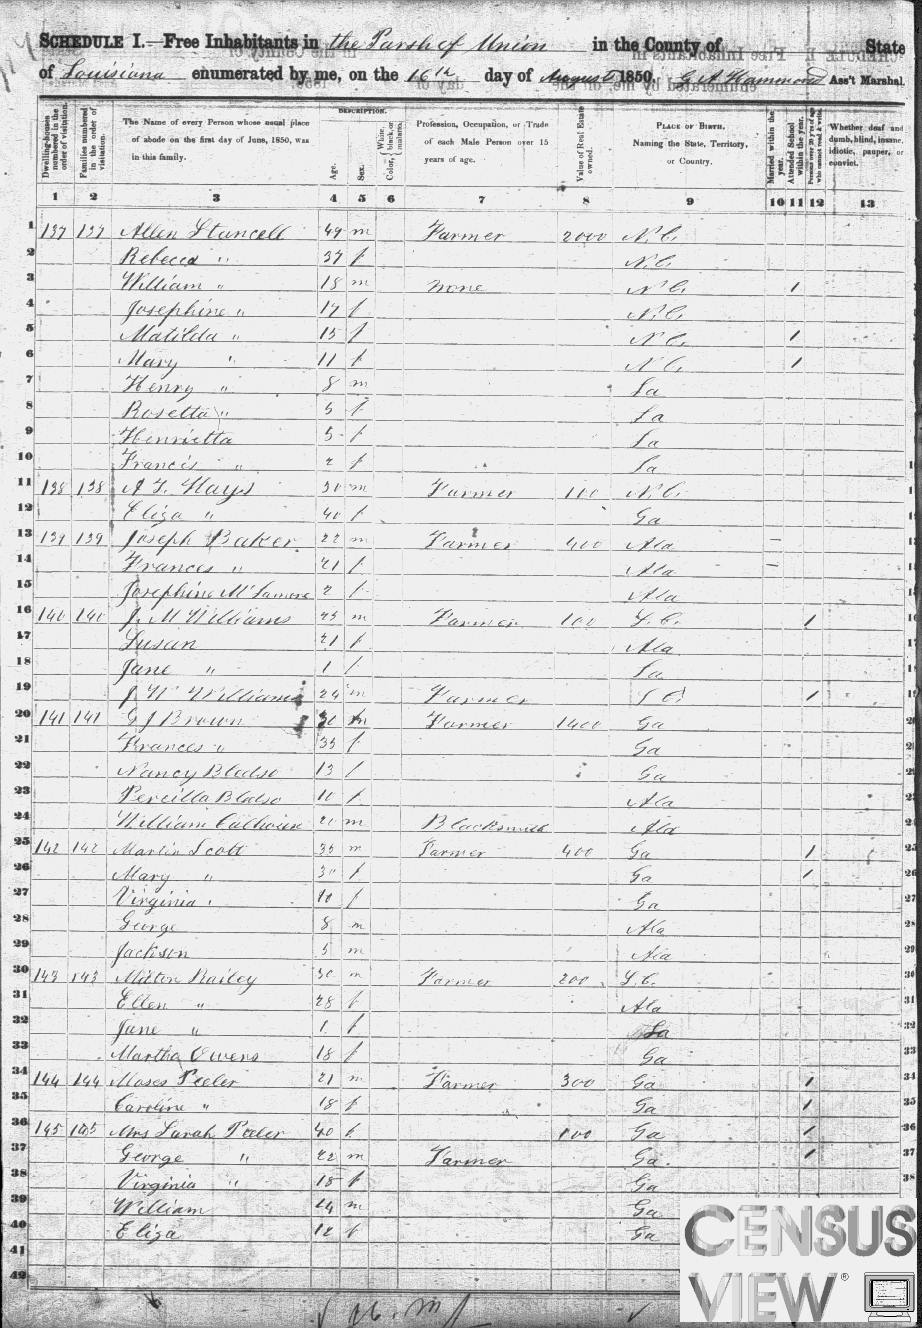 SCHEDULE I.—Free Inhabitants in the Parsh of Union in the County of State
of Louisiana enumerated by me, on the 16th day of August 1850. G A Hammond Ass't Marshal.
Dwelling-houses numbered in the order of visitation.
Families numbered in the order of visitation.
The Name of every Person whose usual place of abode on the first day of June, 1850, was in this family.
DESCRIPTION.
Age.
Sex.
Color, White, black, or mulatto.
Profession, Occupation, or Trade of each Male Person over 15 years of age.
Value of Real Estate owned.
PLACE OF BIRTH. Naming the State, Territory, or Country.
Married within the year.
Attended School within the year.
Persons over 20 y'rs of age who cannot read & write.
Whether deaf and dumb, blind, insane, idiotic, pauper, or convict.
1 2 3 4 5 6 7 8 9 10 11 12 13
1 137 137 Allen Stancell 49 m Farmer 2000 N.C.
2 Rebecca " 37 f N.C.
3 William " 18 m none N.C. 1
4 Josephine " 17 f N.C.
5 Matilda " 15 f N.C. 1
6 Mary " 11 f N.C. 1
7 Henry " 8 m La
8 Rosetta " 5 f La
9 Henrietta 5 f La
10 Francis " 2 f La
11 138 138 Hays 30 m Farmer 100 N.C.
12 Eliza " 40 f Ga
13 139 139 Joseph Baker 22 m Farmer 400 Ala —
14 Frances " 21 f Ala —
15 Josephine 2 f Ala
16 140 140 J. M Williams 25 m Farmer 100 S.C. 1
17 Susan 21 f Ala
18 Jane " 1 f La
19 J W Williams 24 m Farmer S C 1
20 141 141 G J Brown 30 m Farmer 1400 Ga
21 Frances " 35 f Ga
22 Nancy Bledso 13 f Ga
23 Percilla Bledso 10 f Ala
24 William Calhoun 20 m Blacksmith Ala
25 142 142 Martin Scott 35 m Farmer 400 Ga 1
26 Mary " 30 f Ga 1
27 Virginia " 10 f Ga
28 George 8 m Ala
29 Jackson 5 m Ala
30 143 143 Milton Bailey 30 m Farmer 200 S.C.
31 Ellen " 28 f Ala
32 Jane " 1 f La
33 Martha Owens 18 f Ga
34 144 144 Moses Peeler 21 m Farmer 300 Ga 1
35 Caroline " 18 f Ga 1
36 145 145 Mrs Sarah Peeler 40 f 100 Ga 1
37 George " 22 m Farmer Ga 1
38 Virginia " 18 f Ga
39 William 14 m Ga
40 Eliza 12 f Ga
41
42
CENSUS
VIEW ®